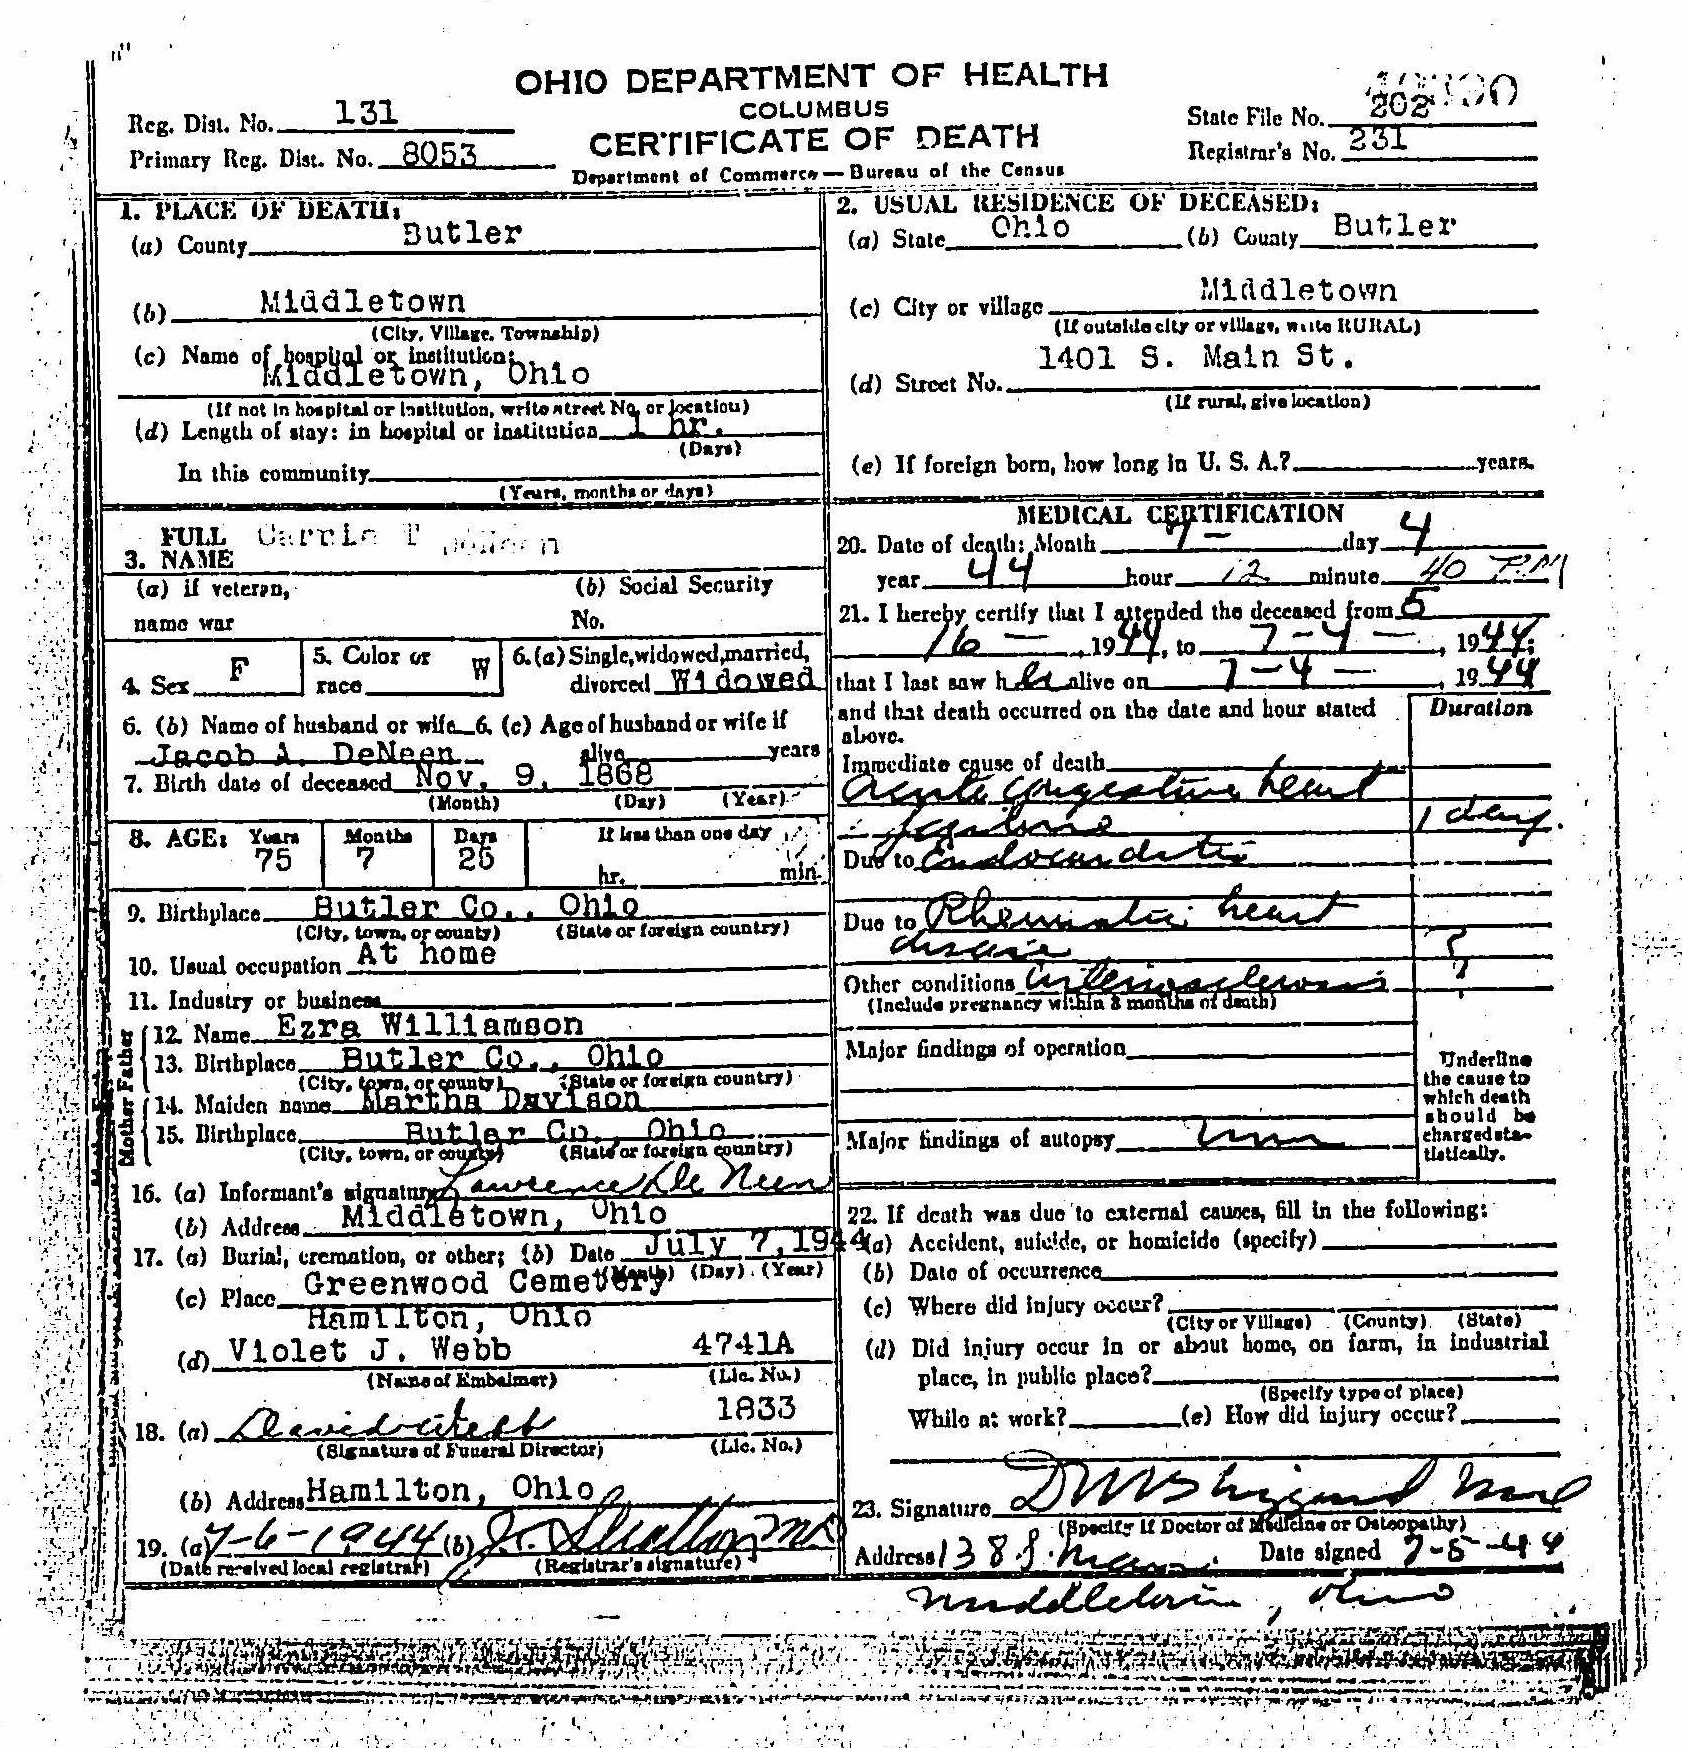 OHIO DEPARTMENT OF HEALTH
COLUMBUS
CERTIFICATE OF DEATH
Department of Commerce — Bureau of the Census
Reg. Dist. No. 131
Primary Reg. Dist. No. 8053
State File No. 202
Registrar's No. 231
1. PLACE OF DEATH:
(a) County Butler
(b) Middletown
(City, Village, Township)
(c) Name of hospital or institution:
Middletown, Ohio
(If not in hospital or institution, write street No. or location)
(d) Length of stay: in hospital or institution 1 hr.
(Days)
In this community
(Years, months or days)
2. USUAL RESIDENCE OF DECEASED:
(a) State Ohio (b) County Butler
(c) City or village Middletown
(If outside city or village, write RURAL)
1401 S. Main St.
(d) Street No.
(If rural, give location)
(e) If foreign born, how long in U. S. A.? years.
3. FULL NAME Carrie T DeNeen
(a) if veteran, name war
(b) Social Security No.
4. Sex F
5. Color or race W
6. (a) Single, widowed, married, divorced Widowed
6. (b) Name of husband or wife 6. (c) Age of husband or wife if
Jacob A. DeNeen alive years
7. Birth date of deceased Nov. 9, 1868
(Month) (Day) (Year)
8. AGE: Years Months Days If less than one day
75 7 25 hr. min.
9. Birthplace Butler Co., Ohio
(City, town, or county) (State or foreign country)
10. Usual occupation At home
11. Industry or business
Father
12. Name Ezra Williamson
13. Birthplace Butler Co., Ohio
(City, town, or county) (State or foreign country)
Mother
14. Maiden name Martha Davison
15. Birthplace Butler Co., Ohio
(City, town, or county) (State or foreign country)
16. (a) Informant's signature Lawrence De Neen
(b) Address Middletown, Ohio
17. (a) Burial, cremation, or other; (b) Date July 7, 1944
(Month) (Day) (Year)
(c) Place Greenwood Cemetery
Hamilton, Ohio
(d) Violet J. Webb 4741A
(Name of Embalmer) (Lic. No.)
18. (a) David Webb 1833
(Signature of Funeral Director) (Lic. No.)
(b) Address Hamilton, Ohio
19. (a) 7-6-1944 (b)
(Date received local registrar) (Registrar's signature)
MEDICAL CERTIFICATION
20. Date of death: Month 7 - day 4
year 44 hour 12 minute 40 P.M
21. I hereby certify that I attended the deceased from 5
16 - , 1944, to 7-4- , 1944;
that I last saw her alive on 7-4- , 1944
and that death occurred on the date and hour stated above.
Duration
Immediate cause of death
Acute congestive heart
failure 1 day.
Due to Endocarditis
Due to Rheumatic heart
disease ?
Other conditions Arteriosclerosis ?
(Include pregnancy within 3 months of death)
Major findings of operation
Major findings of autopsy
Underline the cause to which death should be charged statistically.
22. If death was due to external causes, fill in the following:
(a) Accident, suicide, or homicide (specify)
(b) Date of occurrence
(c) Where did injury occur?
(City or Village) (County) (State)
(d) Did injury occur in or about home, on farm, in industrial
place, in public place?
(Specify type of place)
While at work? (e) How did injury occur?
23. Signature
(Specify if Doctor of Medicine or Osteopathy)
Address 138 S. Main Date signed 7-5-44
Middletown, Ohio